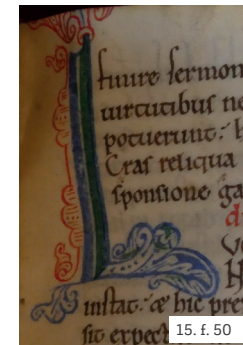 fuure sermon
uirtutibus ne
potuerunt: h
Cras reliqua
sponsione ga
d
instat: æ hic pre
sit expect
15. f. 50